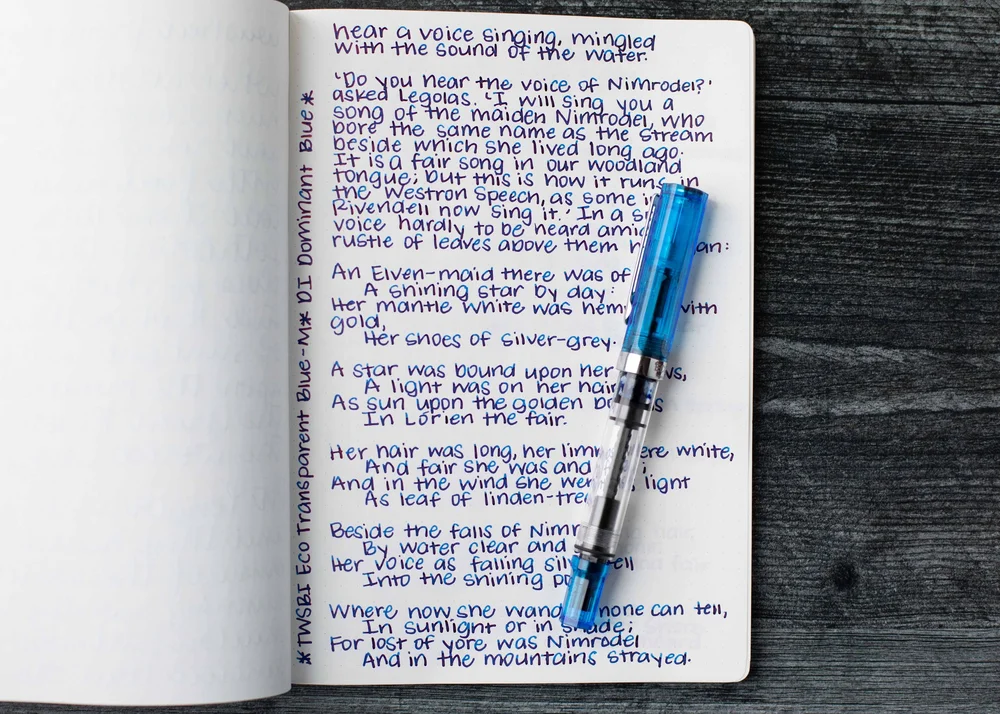 hear a voice singing, mingled
with the sound of the water.
'Do you hear the voice of Nimrodel?'
asked Legolas. 'I will sing you a
song of the maiden Nimrodel, who
bore the same name as the stream
beside which she lived long ago.
It is a fair song in our woodland
tongue; but this is how it runs in
the Westron Speech, as some in
Rivendell now sing it.' In a
voice hardly to be heard
rustle of leaves above them
An Elven-maid there was of
A shining star by day:
Her mantle white was with
gold,
Her shoes of silver-grey.
A star was bound upon her
A light was on her hair
As sun upon the golden
In Lórien the fair.
Her hair was long, her white,
And fair she was and
And in the wind she light
As leaf of linden-tree
Beside the falls of
By water clear and
Her voice as falling
Into the shining
Where now she none can tell,
In sunlight or in shade;
For lost of yore was Nimrodel
And in the mountains strayed.
*TWSBI Eco Transparent Blue-M* DI Dominant Blue*